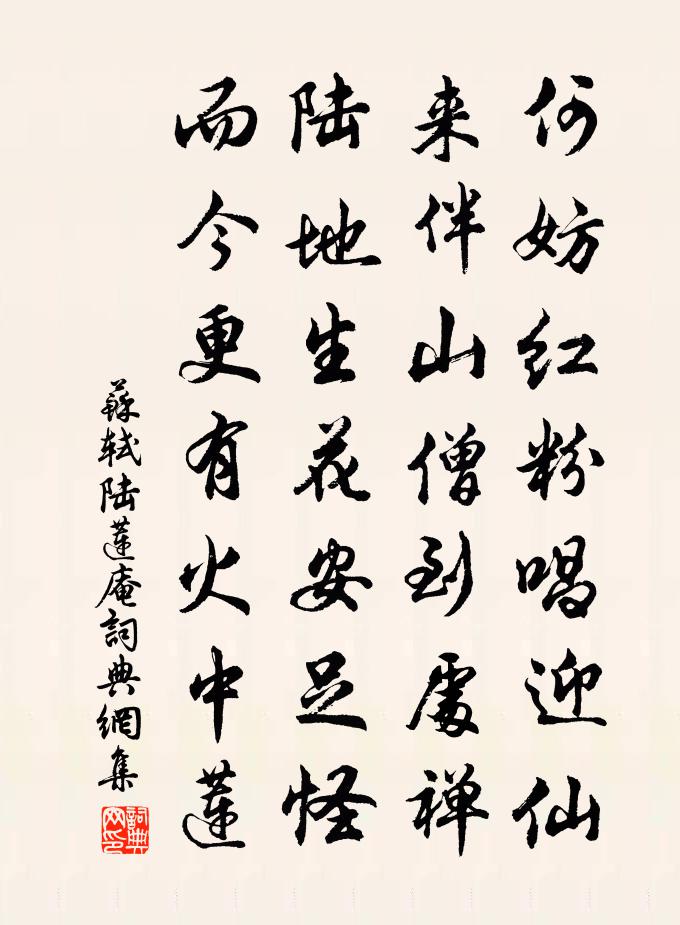 何妨红粉唱迎仙
来伴山僧到處禅
陆地生花安足怪
而今更有火中蓮
蘇軾陆蓮庵詞典網集
詞典網印